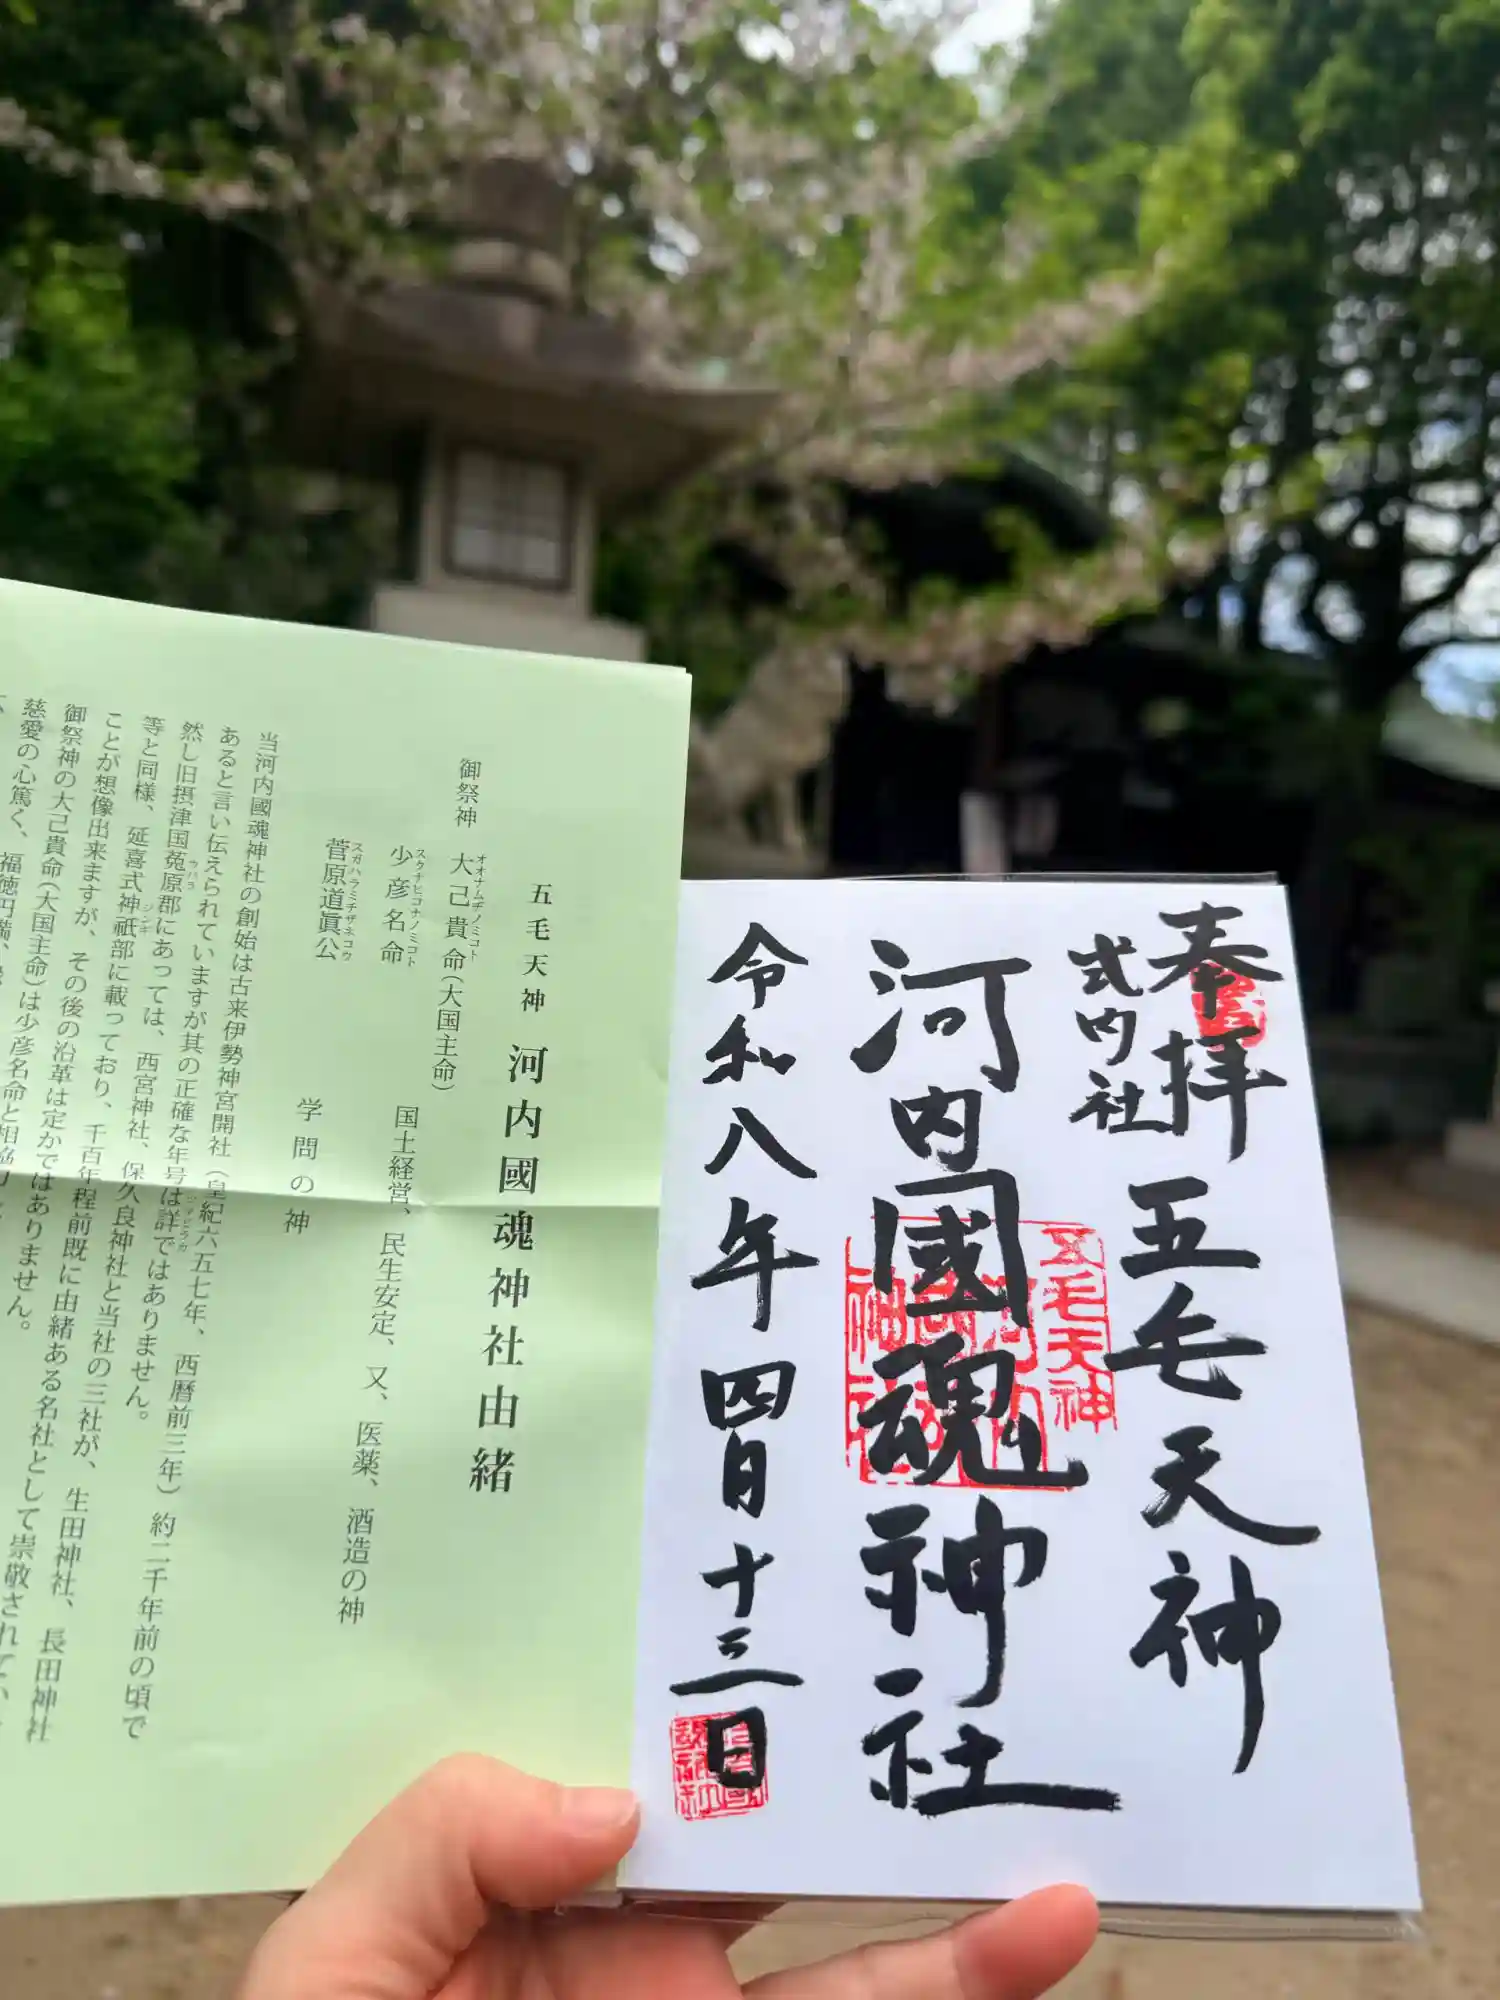 奉拝
式内社
五毛天神
河内國魂神社
令和八年四月十三日
五毛天神
五毛天神 河内國魂神社由緒
御祭神 大己貴命(大国主命)
オオナムヂノミコト
国土経営、民生安定、又、医薬、酒造の神
少彦名命
スクナヒコナノミコト
菅原道眞公
スガハラミチザネコウ
学問の神
当河内國魂神社の創始は古来伊勢神宮開社(皇紀六五七年、西暦前三年)約二千年前の頃で
あると言い伝えられていますが其の正確な年号は詳ではありません。
ツマビラカ
然し旧摂津国菟原郡にあっては、西宮神社、保久良神社と当社の三社が、生田神社、長田神社
ウハラ
等と同様、延喜式神祇部に載っており、千百年程前既に由緒ある名社として崇敬されてい
ジンギ
ことが想像出来ますが、その後の沿革は定かではありません。
御祭神の大己貴命(大国主命)は少彦名命と相協力
慈愛の心篤く、福徳円満、